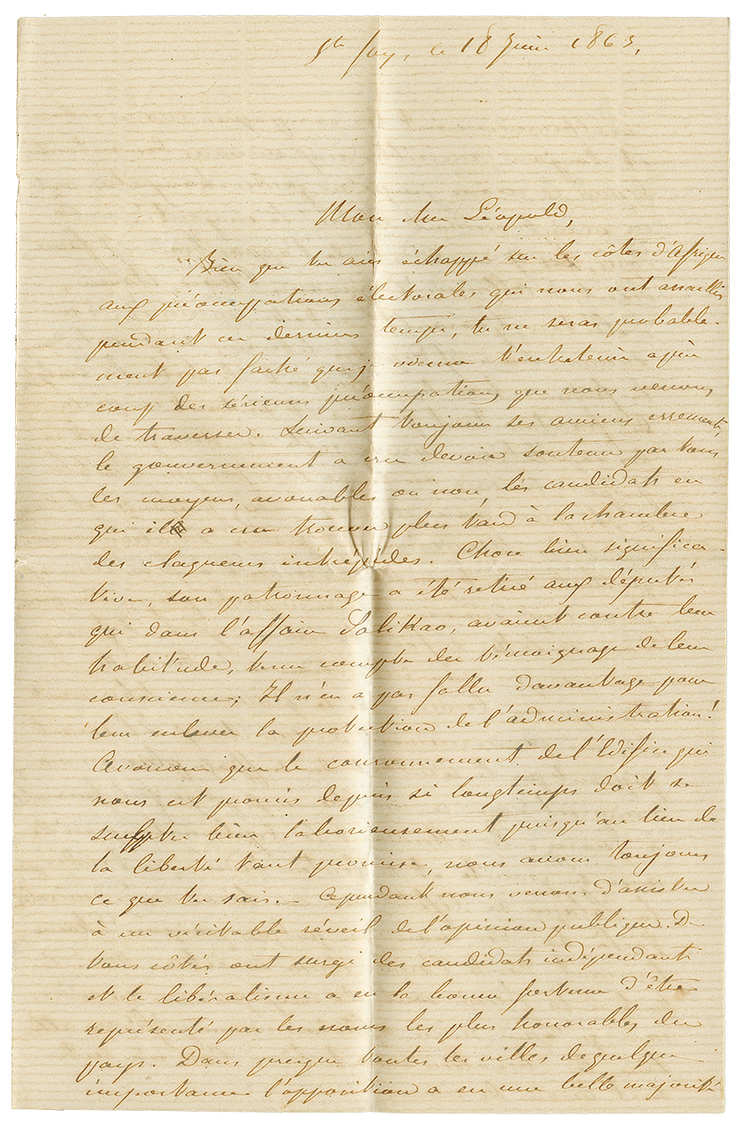 Ste Foy, le 18 Juin 1863,
Mon cher Léopold,
Bien que tu aies échappé sur les côtes d'Afrique
aux préoccupations électorales qui nous ont assaillis
pendant ces derniers temps, tu ne seras probable-
ment pas fâché que je vienne t'entretenir après
coup des sérieuses préoccupations que nous venons
de traverser. Suivant toujours ses anciens errements,
le gouvernement a cru devoir soutenir par tous
les moyens, avouables ou non, les candidats en
qui il a cru trouver plus tard à la chambre
des claqueurs intrépides. Chose bien significa-
tive, son patronnage a été retiré aux députés
qui dans l'affaire Palikao, avaient contre leur
habitude, tenu compte du témoignage de leur
conscience; Il n'en a pas fallu davantage pour
leur enlever la protection de l'administration!
Avouons que le couronnement de l'Edifice qui
nous est promis depuis si longtemps doit se
sculpter bien laborieusement puisqu'au lieu de
la liberté tant promise, nous avons toujours
ce que tu sais. - Cependant nous venons d'assister
à un véritable réveil de l'opinion publique. De
tous côtés ont surgi des candidats indépendants
et le libéralisme a eu la bonne fortune d'être
représenté par les noms les plus honorables du
pays. Dans presque toutes les villes de quelque
importance l'opposition a eu une belle majorité